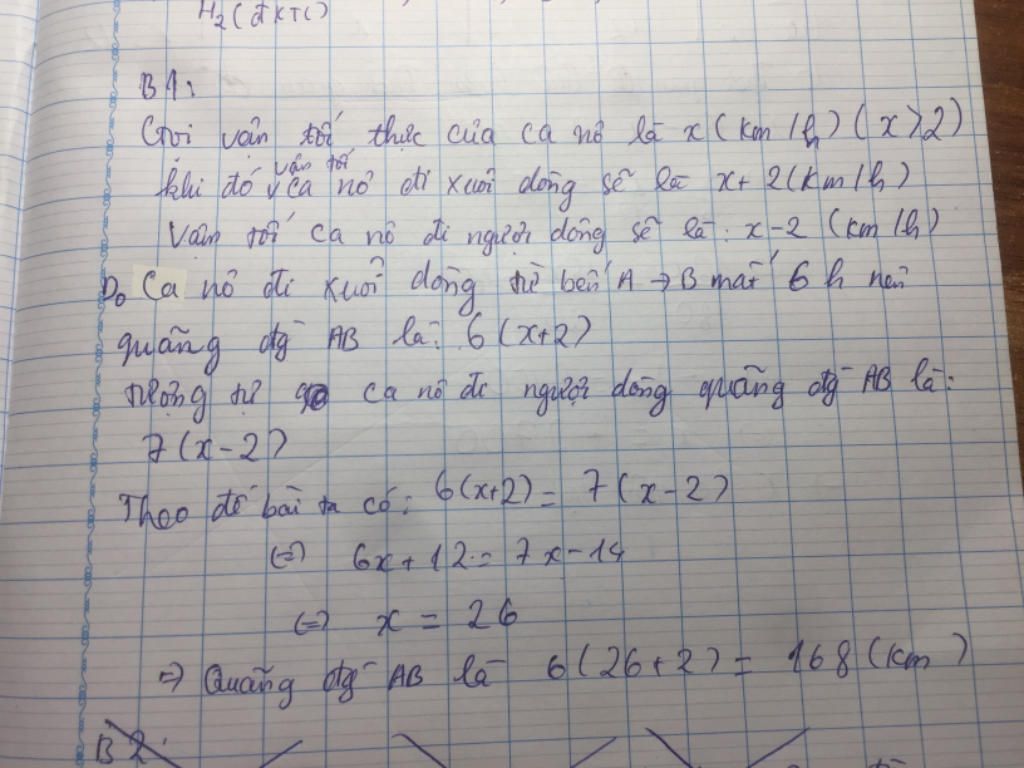 H2 (đKTC)
B1:
Gọi vận tốc thực của ca nô là x (km/h) (x>2)
khi đó vận tốc ca nô đi xuôi dòng sẽ là x+2 (km/h)
Vận tốc ca nô đi ngược dòng sẽ là: x-2 (km/h)
Do Ca nô đi xuôi dòng từ bến A → B mất 6 h nên
quãng đg AB là: 6(x+2)
tương tự ca nô đi ngược dòng quãng đg AB là:
7(x-2)
Theo đề bài ta có: 6(x+2) = 7(x-2)
(=) 6x+12 = 7x-14
(=) x = 26
=) Quãng đg AB là 6(26+2) = 168 (km)
B2: